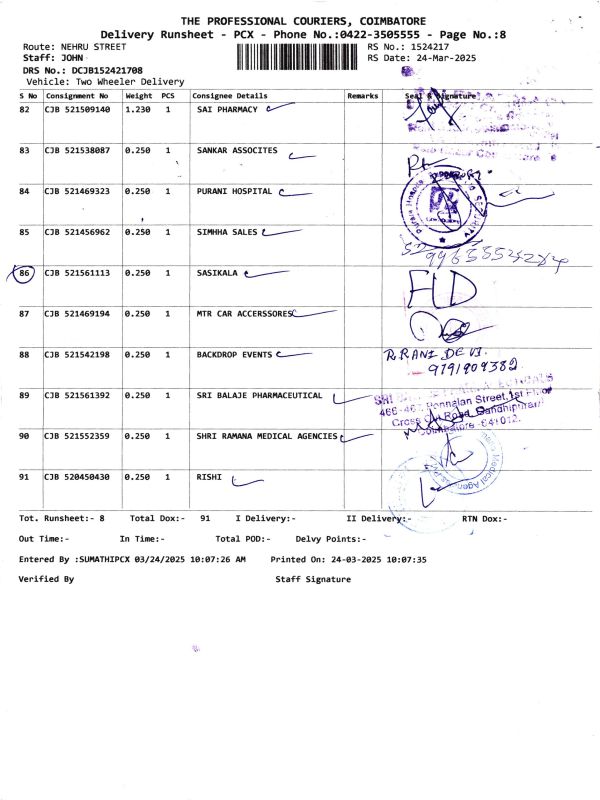 THE PROFESSIONAL COURIERS, COIMBATORE
Delivery Runsheet - PCX - Phone No.:0422-3505555 - Page No.:8
Route: NEHRU STREET RS No.: 1524217
Staff: JOHN RS Date: 24-Mar-2025
DRS No.: DCJB152421708
Vehicle: Two Wheeler Delivery
S No Consignment No Weight PCS Consignee Details Remarks Seal & Signature
82 CJB 521509140 1.230 1 SAI PHARMACY
83 CJB 521538087 0.250 1 SANKAR ASSOCITES
84 CJB 521469323 0.250 1 PURANI HOSPITAL
85 CJB 521456962 0.250 1 SIMHHA SALES
86 CJB 521561113 0.250 1 SASIKALA
87 CJB 521469194 0.250 1 MTR CAR ACCERSSORES
88 CJB 521542198 0.250 1 BACKDROP EVENTS R.RANI DEVI.
9791909382
89 CJB 521561392 0.250 1 SRI BALAJE PHARMACEUTICAL
Ponnaian Street, 1st Floor
Cross Cut Road, Gandhipuram
Coimbatore -641012.
90 CJB 521552359 0.250 1 SHRI RAMANA MEDICAL AGENCIES
91 CJB 520450430 0.250 1 RISHI
Tot. Runsheet:- 8 Total Dox:- 91 I Delivery:- II Delivery:- RTN Dox:-
Out Time:- In Time:- Total POD:- Delvy Points:-
Entered By :SUMATHIPCX 03/24/2025 10:07:26 AM Printed On: 24-03-2025 10:07:35
Verified By Staff Signature